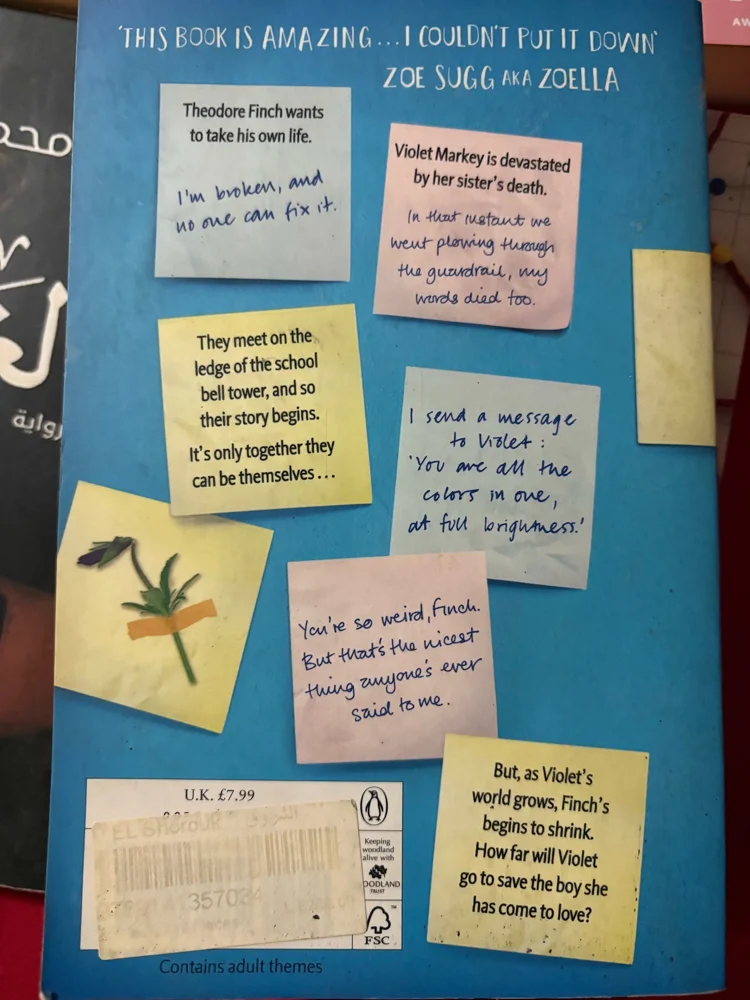 'THIS BOOK IS AMAZING...I COULDN'T PUT IT DOWN'
ZOE SUGG AKA ZOELLA
Theodore Finch wants
to take his own life.
I'm broken, and
no one can fix it.
Violet Markey is devastated
by her sister's death.
In that instant we
went plowing through
the guardrail, my
words died too.
They meet on the
ledge of the school
bell tower, and so
their story begins.
It's only together they
can be themselves...
I send a message
to Violet:
'You are all the
colors in one,
at full brightness.'
You're so weird, Finch.
But that's the nicest
thing anyone's ever
said to me.
But, as Violet's
world grows, Finch's
begins to shrink.
How far will Violet
go to save the boy she
has come to love?
U.K. £7.99
EL Shorouk الشروق
Keeping
woodland
alive with
WOODLAND
TRUST
FSC
Contains adult themes
محمد
رواية
AW